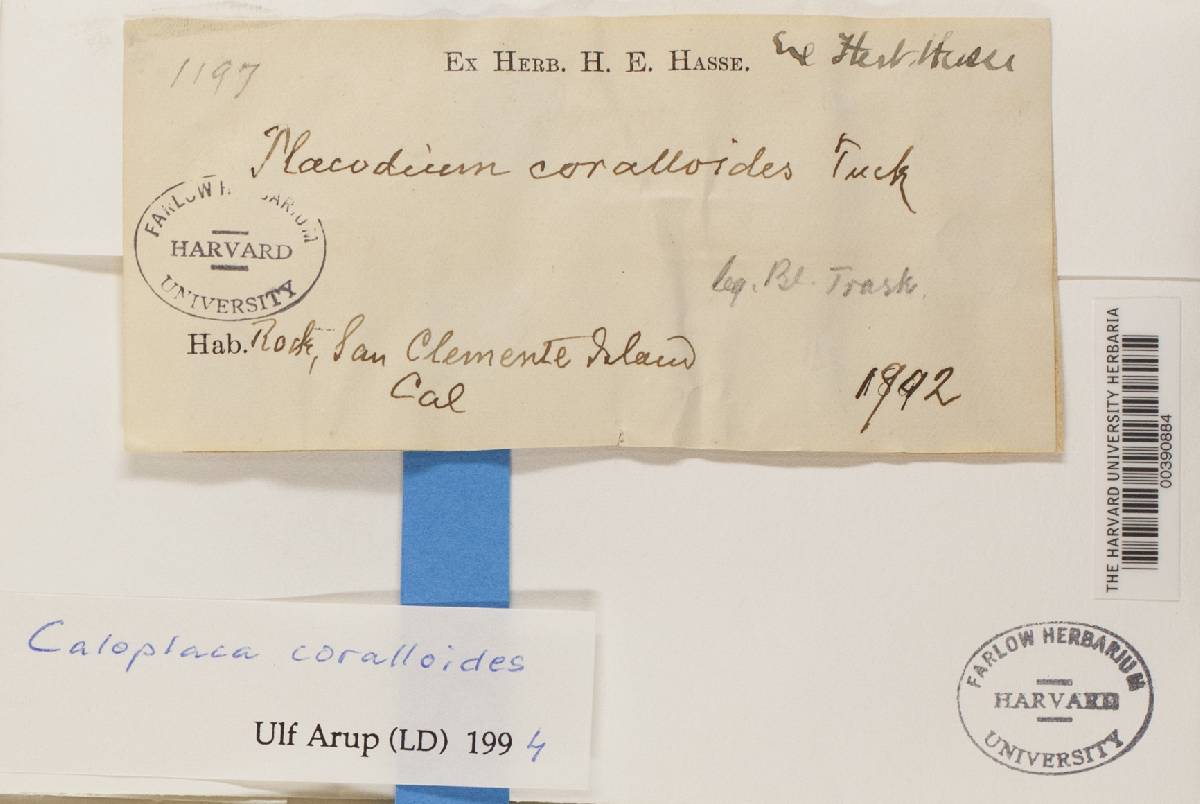 1197
EX HERB. H. E. HASSE. Ex Herb. Hasse
Placodium coralloides Tuck
FARLOW HERBARIUM
HARVARD
UNIVERSITY
leg. Bl. Trask.
Hab. Rock, San Clemente Island
Cal
1892
THE HARVARD UNIVERSITY HERBARIA
00390884
Caloplaca coralloides
Ulf Arup (LD) 1994
FARLOW HERBARIUM
HARVARD
UNIVERSITY